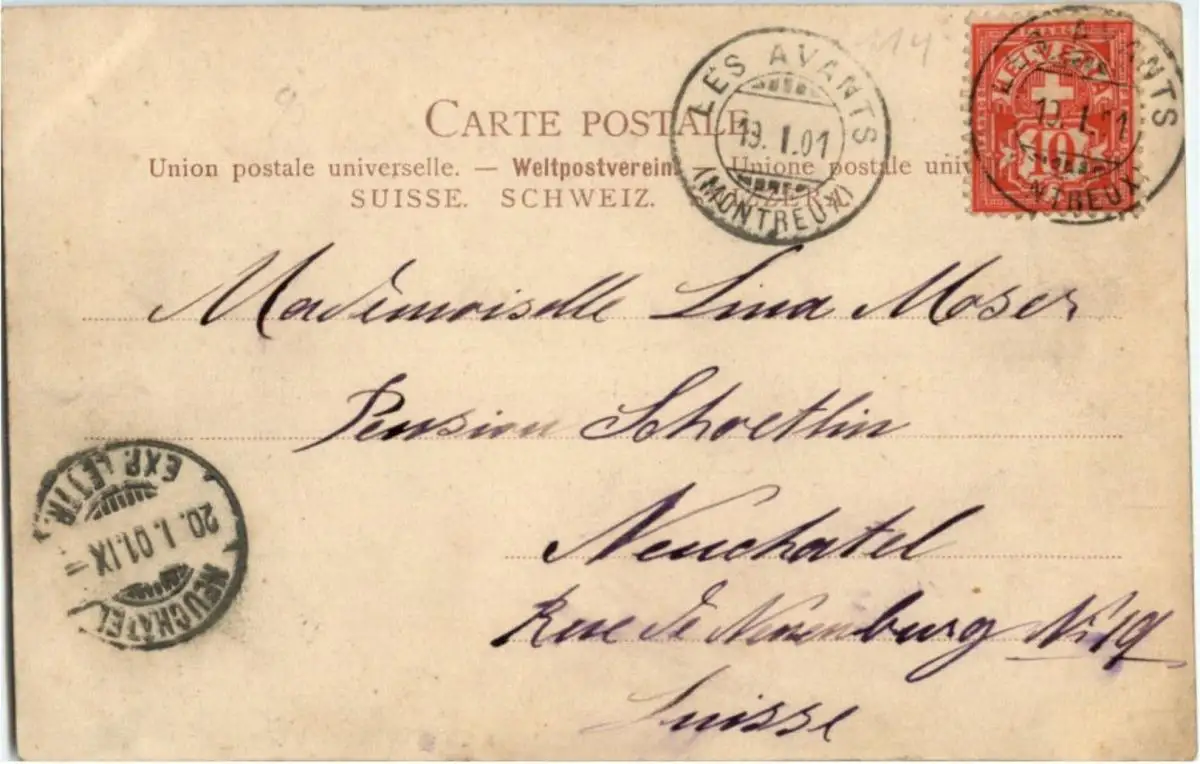 CARTE POSTALE
Union postale universelle. — Weltpostverein. — Unione postale
SUISSE. SCHWEIZ.
LES AVANTS
19. I. 01
(MONTREUX)
HELVETIA
10
AVANTS
19. I. 01
NTREUX
Mademoiselle Lina Moser
Pension Schoetlin
Neuchatel
Rue de No 19
Suisse
NEUCHÂTEL
20. I. 01. IX
EXP. LETTR.